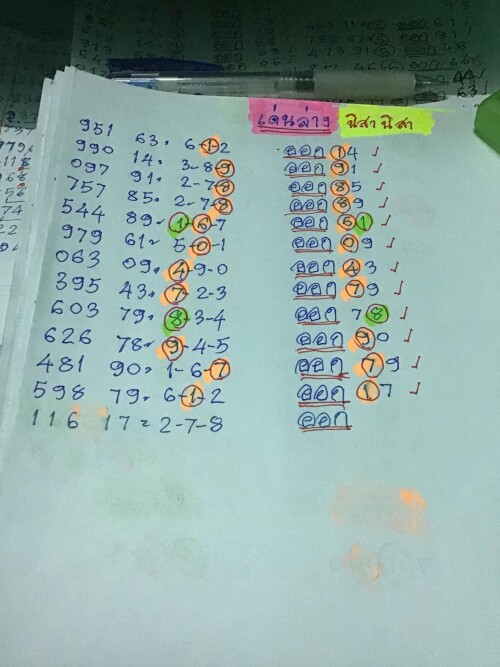 เด่นล่าง นิสา นิสา
951 63. 6-1-2 ออก 14 ✓
990 14. 3-8-9 ออก 91 ✓
097 91. 2-7-8 ออก 85 ✓
757 85. 2-7-8 ออก 89 ✓
544 89. 1-6-7 ออก 61 ✓
979 61. 5-0-1 ออก 09 ✓
063 09. 4-9-0 ออก 43 ✓
395 43. 7-2-3 ออก 79 ✓
603 79. 8-3-4 ออก 78 ✓
626 78. 9-4-5 ออก 90 ✓
481 90. 1-6-7 ออก 79 ✓
598 79. 6-1-2 ออก 17 ✓
116 17 = 2-7-8 ออก